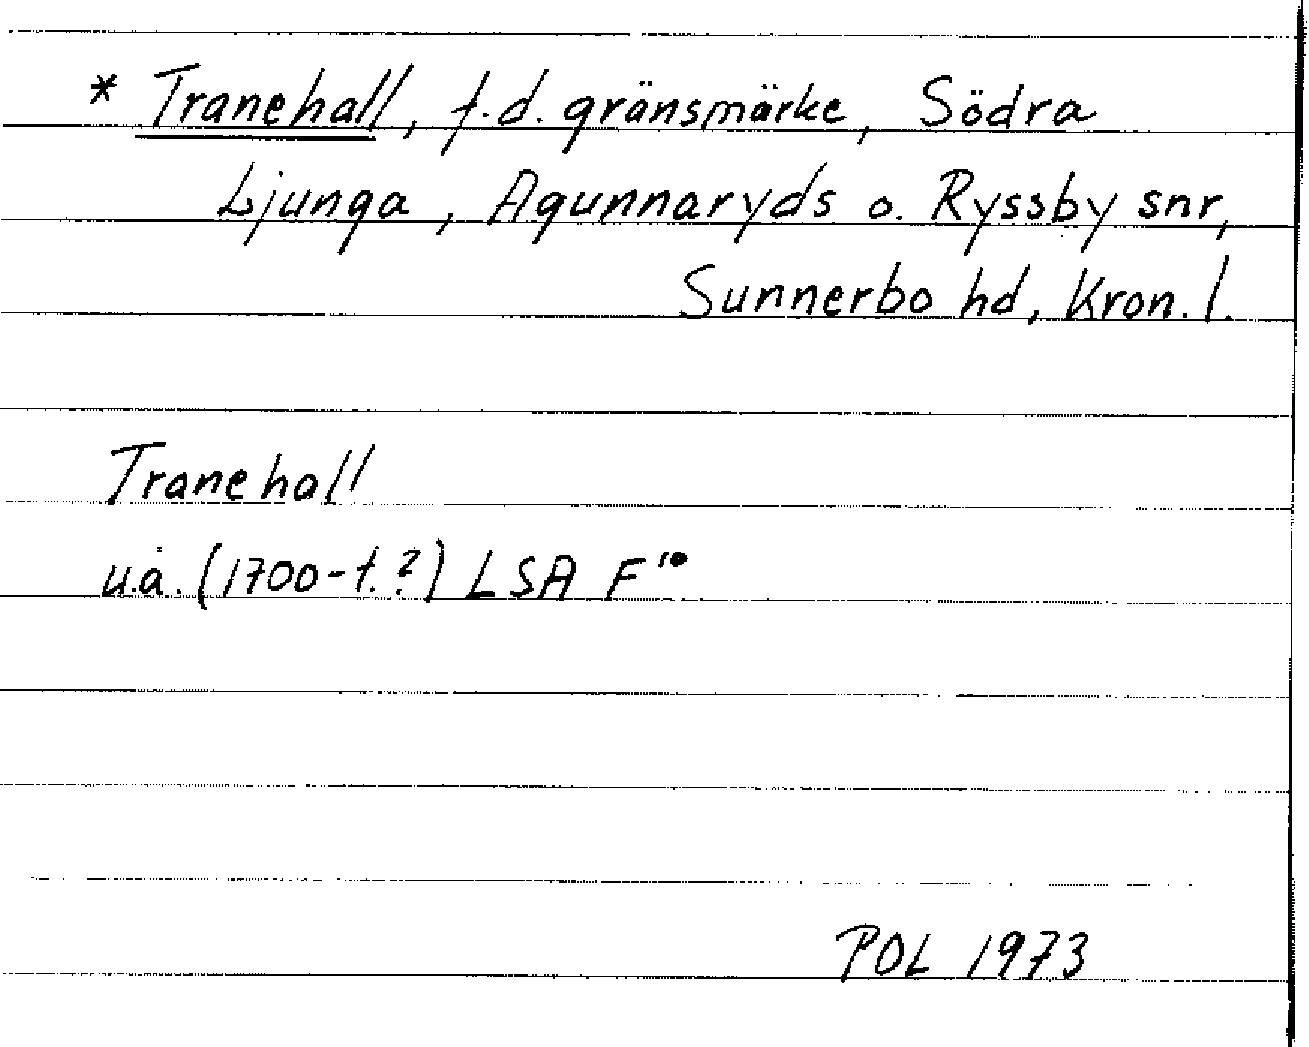 * Tranehall, f.d. gränsmärke, Södra
Ljunga, Agunnaryds o. Ryssby snr,
Sunnerbo hd, Kron. l.
Tranehall
u.å. (1700-t.?) LSA F¹⁰
POL 1973